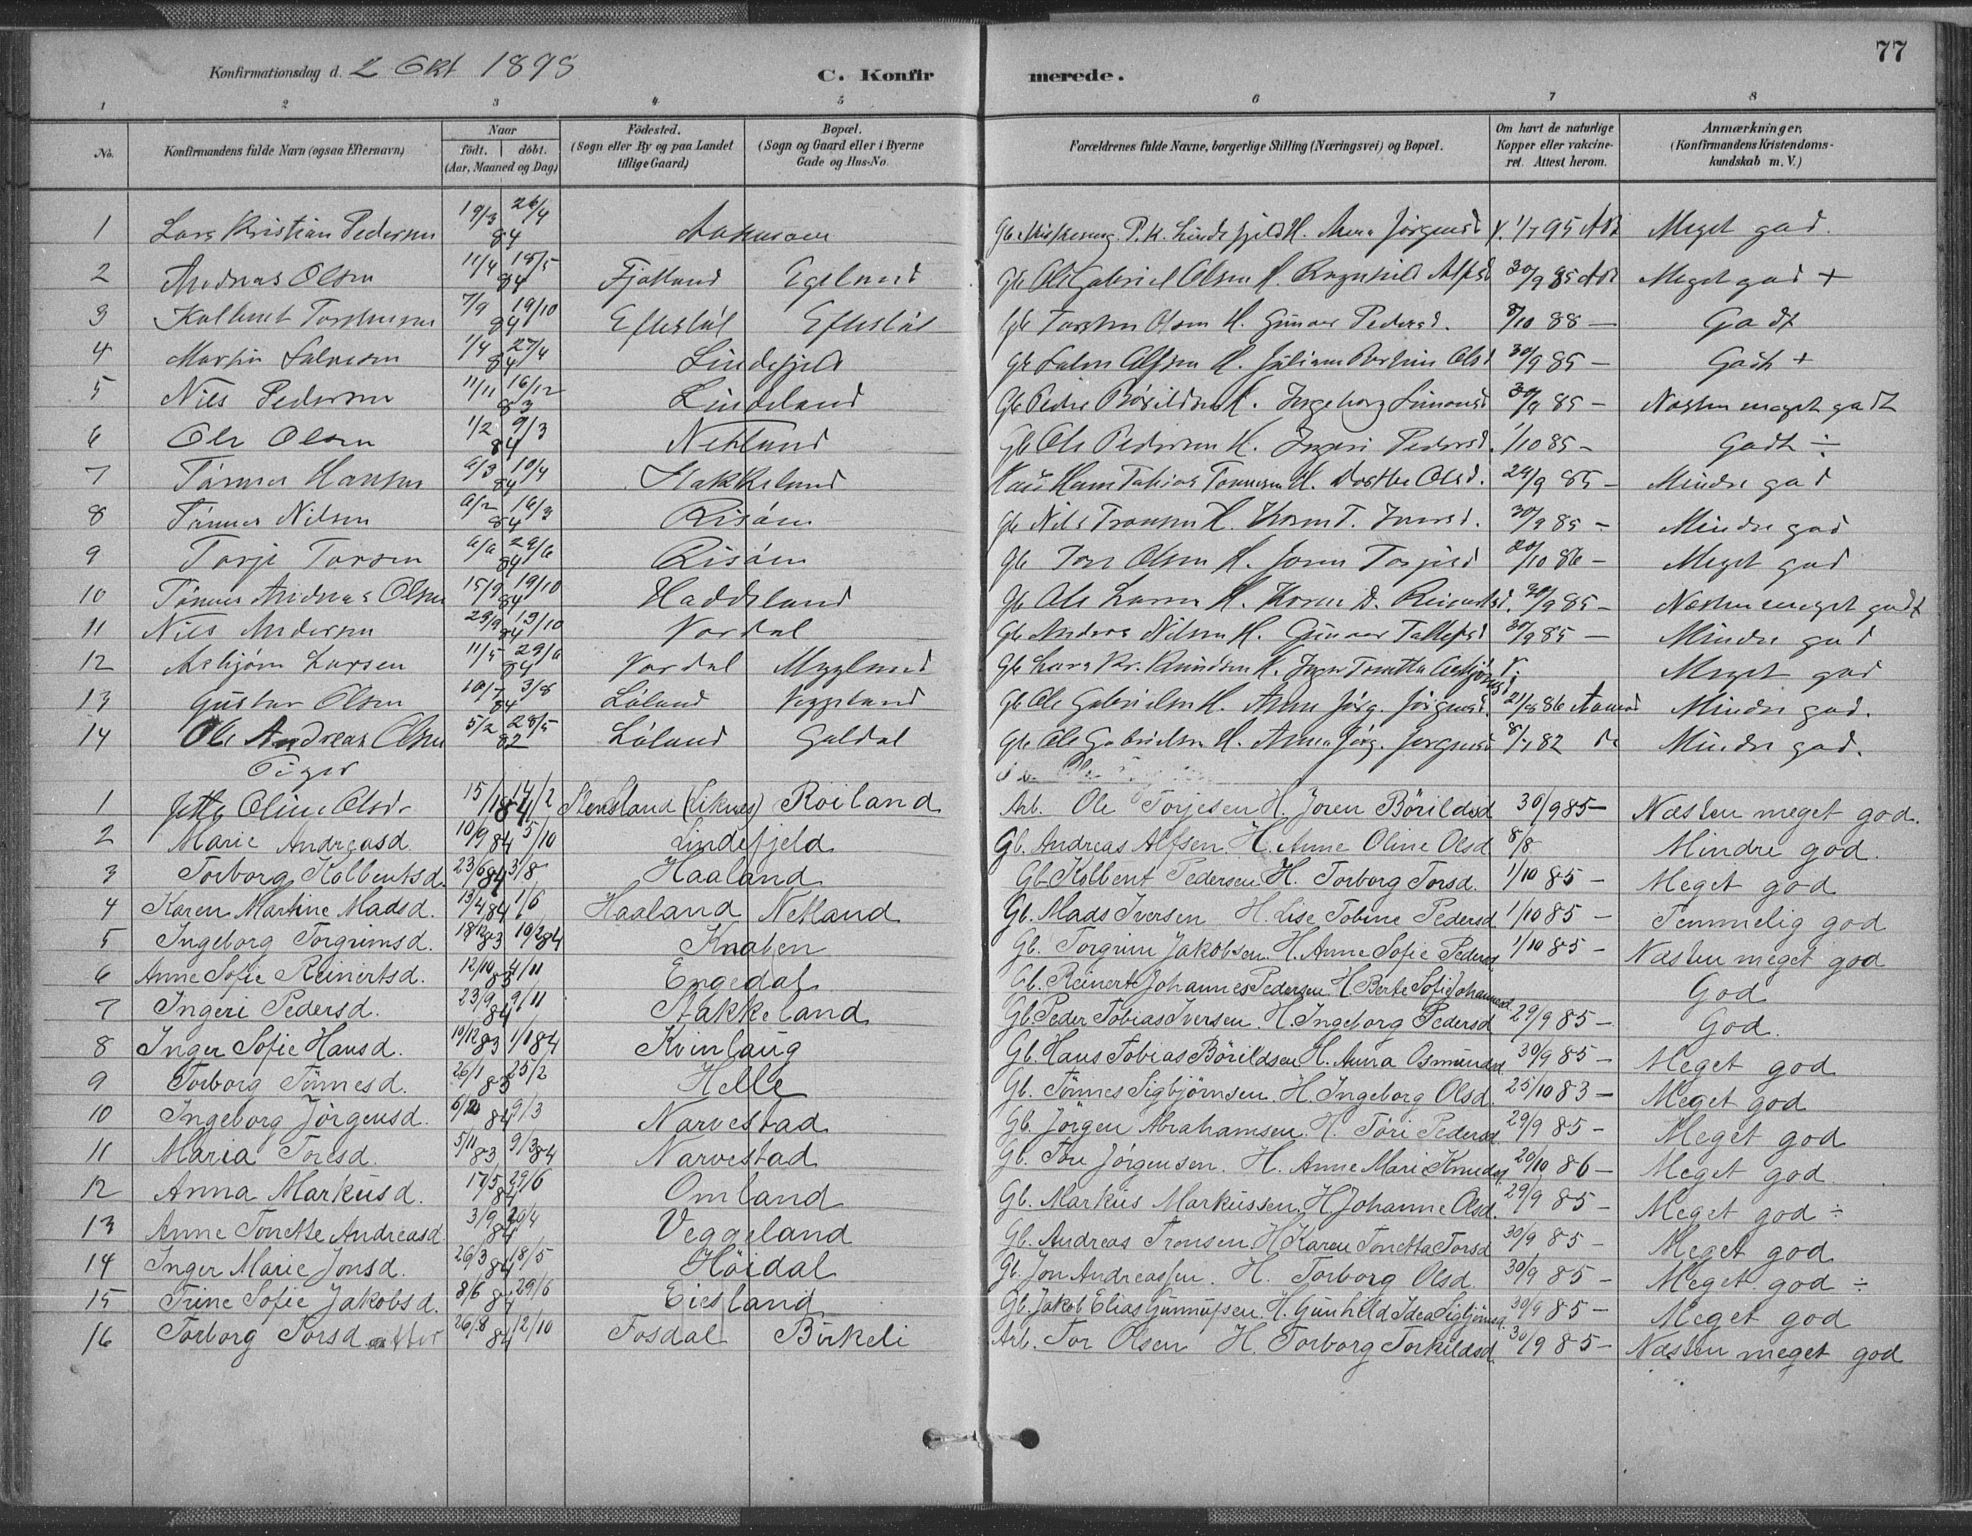 77
Konfirmationsdag d. 2 Okt 1898 C. Konfirmerede.
1 2 3 4 5 6 7 8
No. Konfirmandens fulde Navn (ogsaa Efternavn) Naar født. døbt. (Aar, Maaned og Dag) Födested. (Sogn eller By og paa Landet tillige Gaard) Bopæl. (Sogn og Gaard eller i Byerne Gade og Hus-No. Forældrenes fulde Navne, borgerlige Stilling (Næringsvei) og Bopæl. Om havt de naturlige Kopper eller vakcineret. Attest herom. Anmærkninger, (Konfirmandens Kristendomskundskab m. V.)
1 Lars Kristian Pedersen 19/3 26/4 84 P. K. Lindefjeld H. Anna Jørgensd 95 Meget god.
2 Andreas Olsen 11/4 18/5 84 Fjotland Egeland Gb Ole Gabriel Olsen H. Ragnhild Alfsd 30/9 85 Meget god +
3 Kolbent Torstensen 7/9 19/10 84 Eftestøl Eftestøl Gb Torsten Olsen H. Gunvor Pedersd. 8/10 88 — Godt
4 Martin Salvesen 1/4 27/4 84 Lindefjeld Gb Salve Alfsen H. Juliane Olsd 30/9 85 — Godt +
5 Nils Pedersen 11/11 16/12 83 Lindeland Gb Peder Børildsen H. Ingeborg Simonsd 30/9 85 — Næsten meget godt
6 Ole Olsen 1/2 9/3 84 Netland Gb Ole Pedersen H. Ingeri Pedersd. 1/10 85 — Godt ÷
7 Tønnes Hansen 10/4 84 Stakkeland Hans Tobias Tønnesen H. Dorthe Olsd. 29/9 85 — Mindre god
8 Tønnes Nilsen 16/3 84 Risøen Gb Nils Tronsen H. Karen T. 30/9 85 — Mindre god
9 Torje Torsen 29/6 84 Risøen Gb Tore Olsen H. Joren Torjusd 20/10 86 — Meget god
10 Tønnes Andreas Olsen 15/9 19/10 84 Haddeland Gb Ole Larsen H. Karen D. Reinertsd. 30/9 85 — Næsten meget godt
11 Nils Andersen 23/9 19/10 84 Vordal Gb Andreas Nilsen H. Gunvor Tallefsd 30/9 85 — Mindre god
12 Asbjørn Larsen 11/5 29/6 84 Vordal Mygland Gb Lars Kr. Knudsen H. Inger Tonetta Asbjørnsd v. Meget god
13 Gustav Olsen 10/7 3/8 84 Løland Veggeland Gb Ole Gabrielsen H. Anna Jørg. Jørgensd. 21/8 86 Mindre god.
14 Ole Andreas Olsen 5/2 28/5 82 Løland Galdal Gb Ole Gabrielsen H. Anna Jørg. Jørgensd 82 do Mindre god.
Piger
1 Jette Oline Olsd. 15/1 84 14/2 Stensland (Liknes) Roiland Arb. Ole Torjesen H. Joren Börildsd 30/9 85 — Næsten meget god.
2 Marie Andreasd. 10/9 84 5/10 Lindefjeld Gb. Andreas Alfsen. H. Anne Oline Olsd 8/8 Mindre god.
3 Torborg Kolbentsd. 23/6 84 3/8 Haaland Gb Kolbent Pedersen H. Torborg Torsd. 1/10 85 — Meget god
4 Karen Martine Madsd. 13/4 84 1/6 Haaland Netland Gb. Mads Iversen H. Lise Tobine Pedersd 1/10 85 — Temmelig god
5 Ingeborg Torgrimsd. 18/12 83 10/2 84 Knaben Gb. Torgrim Jakobsen. H. Anne Sofie Pedersd 1/10 85 — Næsten meget god
6 Anne Sofie Reinertsd. 12/10 83 4/11 Engedal Gb. Reinert Johannes Pedersen H. Berte Sofi Johannesd God
7 Ingeri Pedersd. 23/9 84 9/11 Stakkeland Gb. Peder Tobias Iversen. H. Ingeborg Pedersd 29/9 85 — God.
8 Inger Sofie Hansd. 10/12 83 1/1 84 Kvinlaug Gb. Hans Tobias Börildsen H. Anna Osmundsd 30/9 85 — Meget god
9 Torborg Tönnesd. 26/1 83 25/2 Helle Gb. Tönnes Sigbjörnsen. H. Ingeborg Olsd. 25/10 83 — Meget god
10 Ingeborg Jörgensd. 84 9/3 Narvestad Gb. Jörgen Abrahamsen. H. Töri Pedersd 29/9 85 — Meget god
11 Maria Toresd. 5/11 83 9/3 84 Narvestad Gb. Tore Jörgensen. H. Anne Marie Knudsd 20/10 86 — Meget god
12 Anna Markusd. 17/5 84 29/6 Omland Gb. Markus Markussen. H. Johanne Olsd. 29/9 85 — Meget god ÷
13 Anne Tonette Andreasd 3/9 84 20/4 Veggeland Gb. Andreas Tronsen H Karen Tonetta Torsd 30/9 85 — Meget god
14 Inger Marie Jonsd. 26/3 84 18/5 Höidal Gb. Jon Andreassen. H. Torborg Olsd. 30/9 85 — Meget god ÷
15 Trine Sofie Jakobsd. 8/6 84 29/6 Eiesland Gb. Jakob Elias Gunnufsen H. Gunhild Idea Sigbjörnsd. 30/9 85 — Meget god
16 Torborg Torsd. 26/8 84 12/10 Fosdal Birkeli Arb. Tor Olsen H. Torborg Torkildsd. 30/9 85 — Næsten meget god